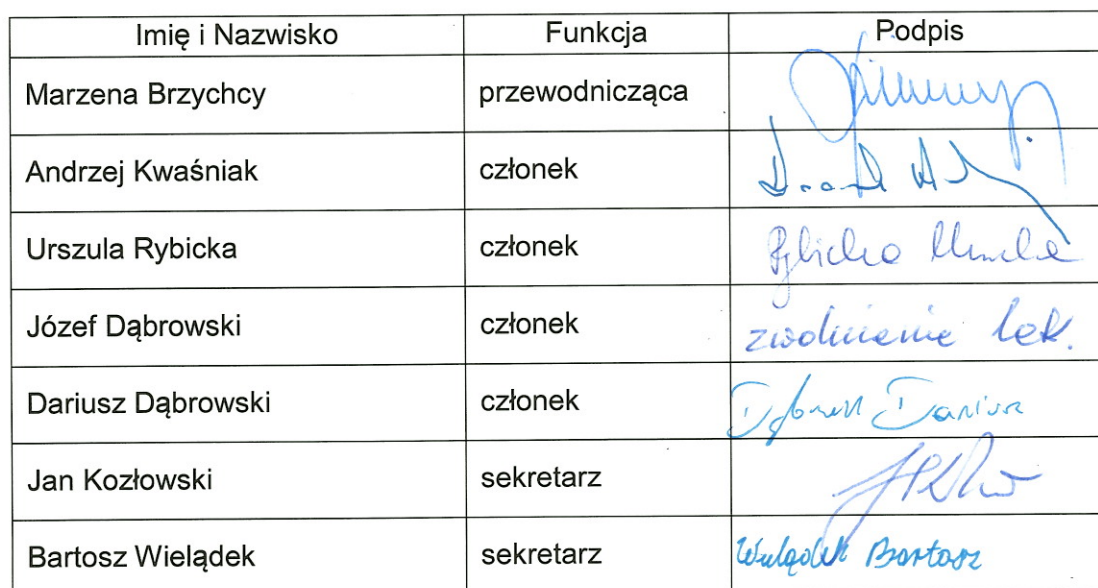 Imię i Nazwisko Funkcja Podpis
Marzena Brzychcy przewodnicząca
Andrzej Kwaśniak członek
Urszula Rybicka członek Rybicka Urszula
Józef Dąbrowski członek zwolnienie lek.
Dariusz Dąbrowski członek Dariusz
Jan Kozłowski sekretarz
Bartosz Wielądek sekretarz Wielądek Bartosz